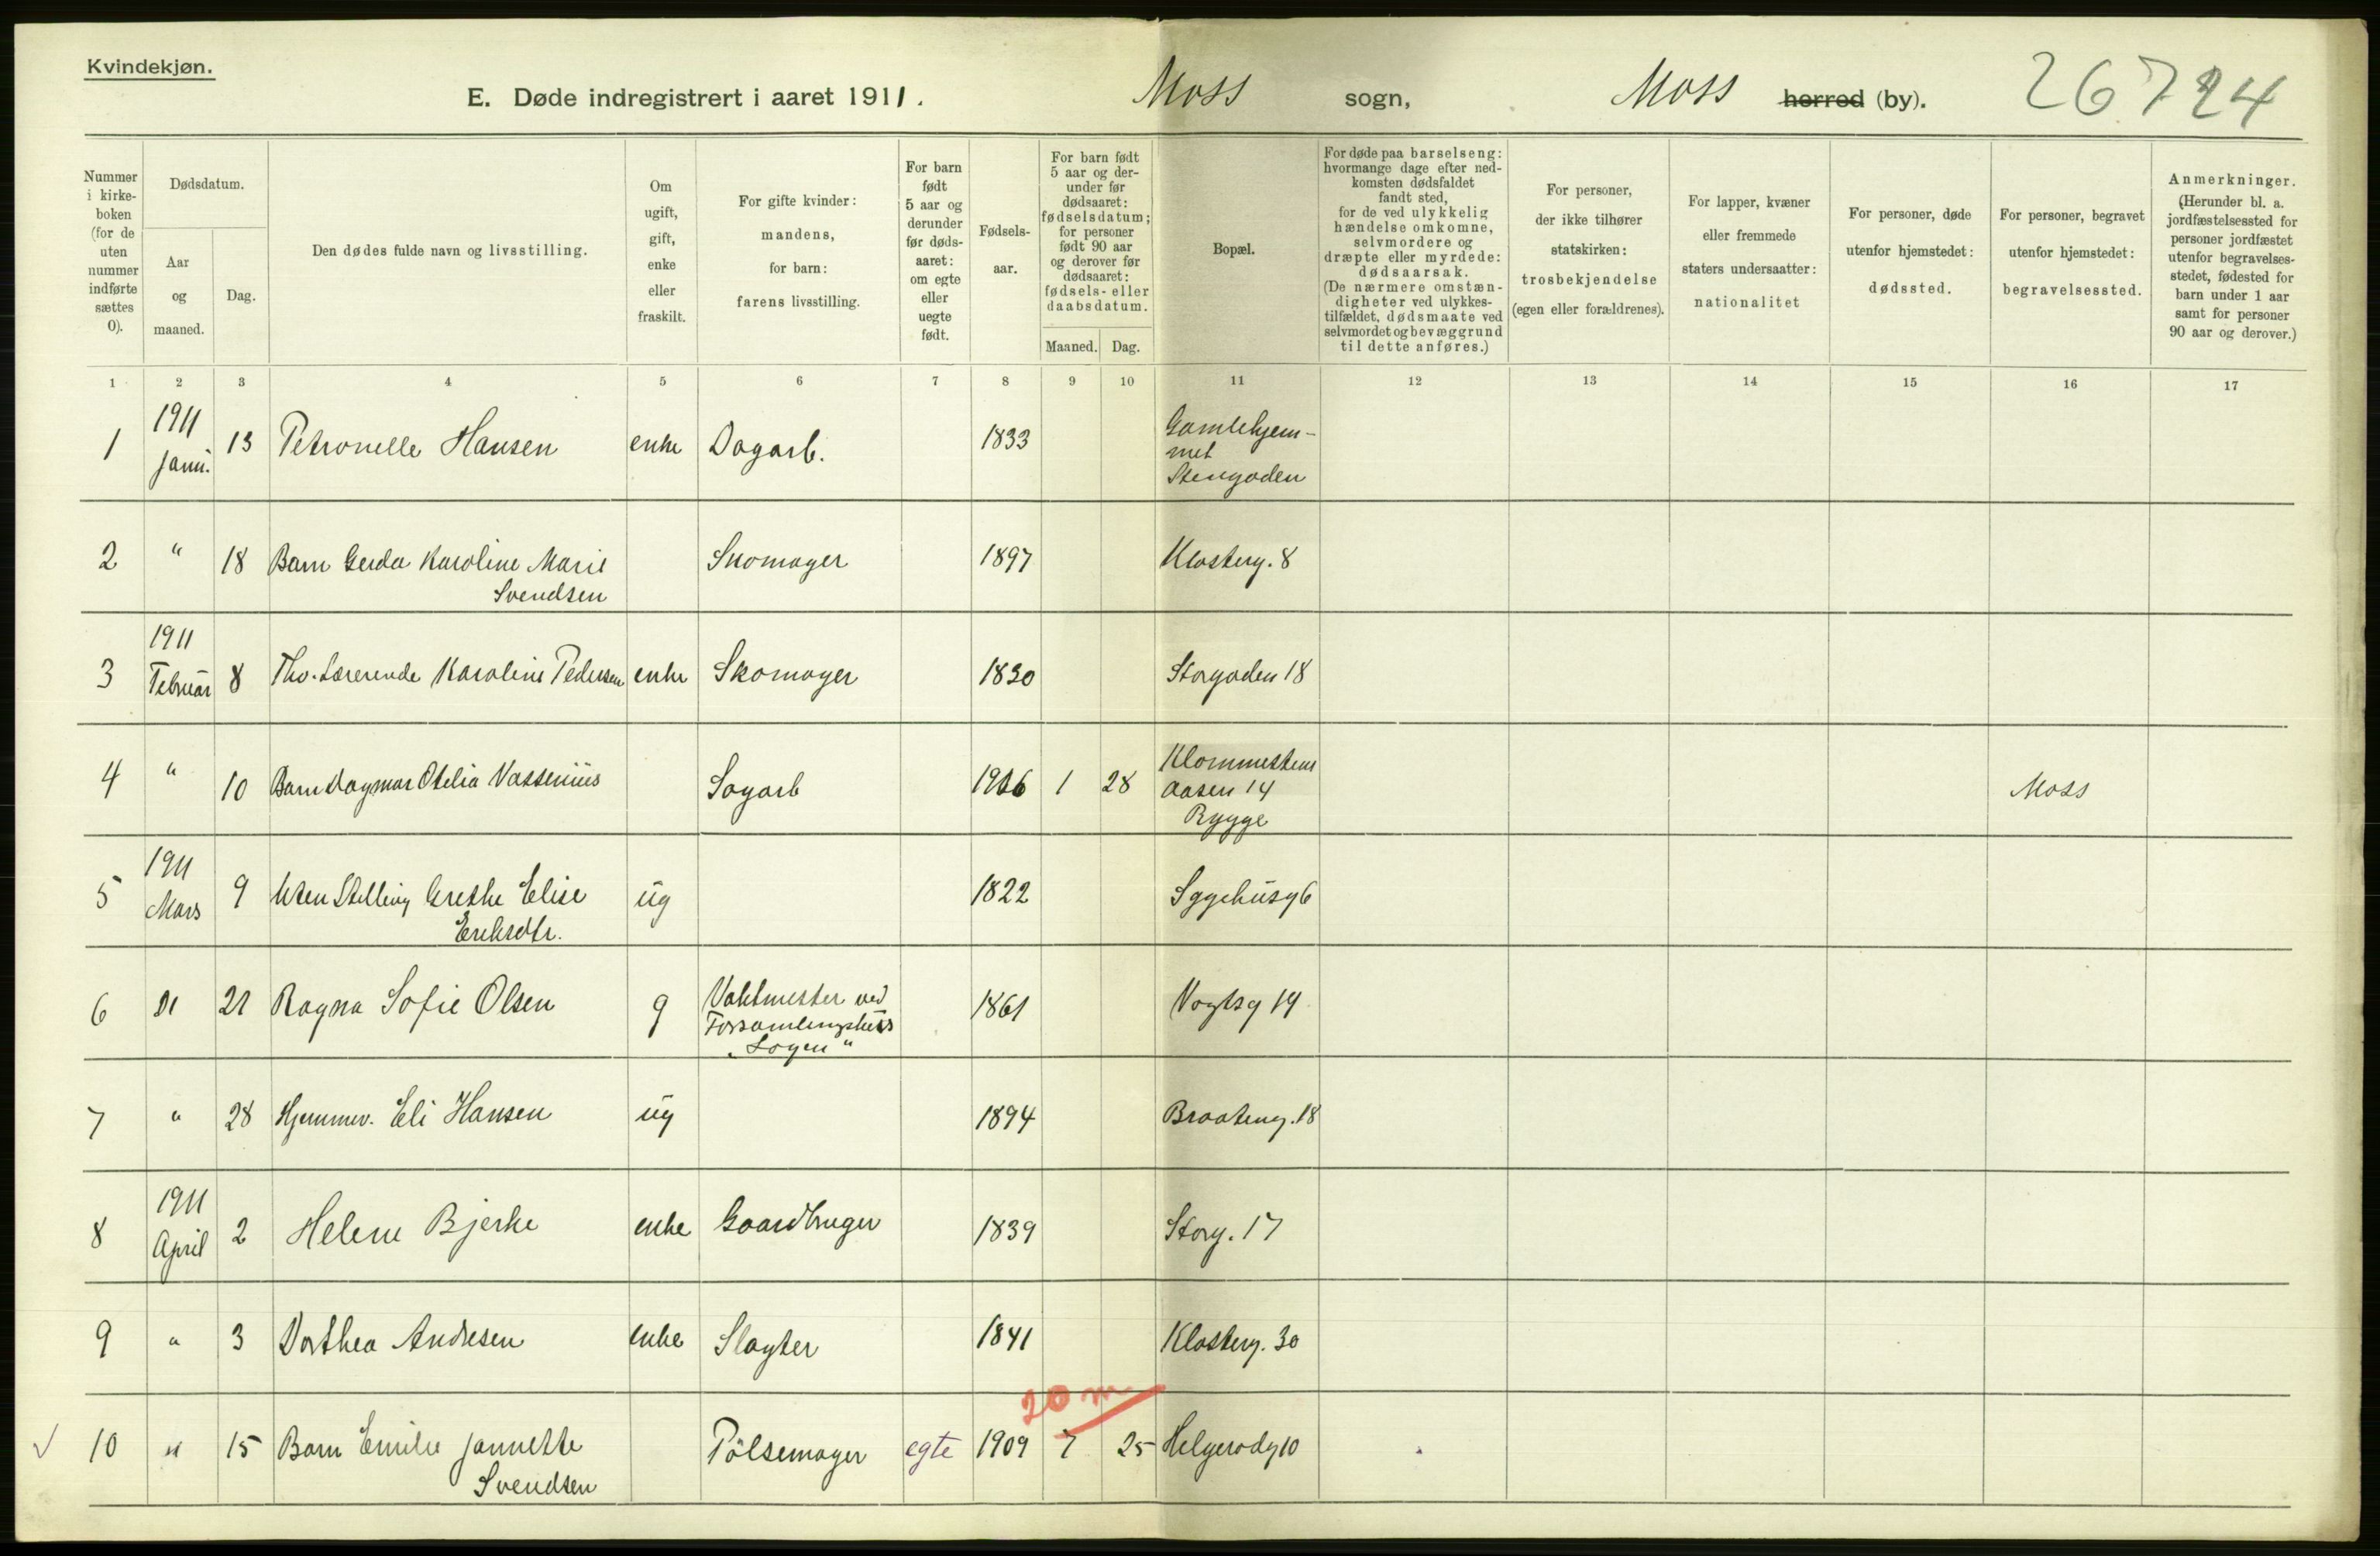 Kvindekjøn.
E. Døde indregistrert i aaret 1911. Moss sogn, Moss herred (by). 26724
Nummer i kirke-boken (for de uten nummer indførte sættes 0).
Dødsdatum.
Aar og maaned.
Dag.
Den dødes fulde navn og livsstilling.
Om ugift, gift, enke eller fraskilt.
For gifte kvinder: mandens, for barn: farens livsstilling.
For barn født 5 aar og derunder før døds-aaret: om egte eller uegte født.
Fødsels-aar.
For barn født 5 aar og der-under før dødsaaret: fødselsdatum; for personer født 90 aar og derover før dødsaaret: fødsels- eller daabsdatum.
Maaned. Dag.
Bopæl.
For døde paa barselseng: hvormange dage efter ned-komsten dødsfaldet fandt sted, for de ved ulykkelig hændelse omkomne, selvmordere og dræpte eller myrdede: dødsaarsak. (De nærmere omstæn-digheter ved ulykkes-tilfældet, dødsmaate ved selvmordet og bevæggrund til dette anføres.)
For personer, der ikke tilhører statskirken: trosbekjendelse (egen eller forældrenes).
For lapper, kvæner eller fremmede staters undersaatter: nationalitet
For personer, døde utenfor hjemstedet: dødssted.
For personer, begravet utenfor hjemstedet: begravelsessted.
Anmerkninger. (Herunder bl. a. jordfæstelsessted for personer jordfæstet utenfor begravelses-stedet, fødested for barn under 1 aar samt for personer 90 aar og derover.)
1 2 3 4 5 6 7 8 9 10 11 12 13 14 15 16 17
1 1911 Janu. 13 Petronelle Hansen enke Dagarb. 1833 Gamlehjem-
met
Stengaden
2 " 18 Barn Gerda Karoline Marie Skomager 1897 Klosterg. 8
Svendsen
3 1911 Februar 8 Karoline Pedersen enke Skomager 1830 Storgaden 18
4 " 10 Barn Dagmar Otelia Vassenius Sagarb 1906 1 28 Klommestens
Aasen 14 Moss
Rygge
5 1911 Mars 9 Uten Stilling Grethe Elise ug 1822 Sygehusg 6
Eriksdtr.
6 " 21 Ragna Sofie Olsen g Vaktmester ved 1861 Vogtsg 14
Forsamlingshus
"Logen"
7 " 28 Hjemmev. Eli Hansen ug 1894 Braateng. 18
8 1911 April 2 Helene Bjerke enke Gaardbruger 1839 Storg. 17
9 " 3 Dorthea Andresen enke Slagter 1841 Klosterg. 30
20 m
10 " 15 Barn Emilie Jannette Pölsemager egte 1909 7 25 Helgerødg 10
Svendsen